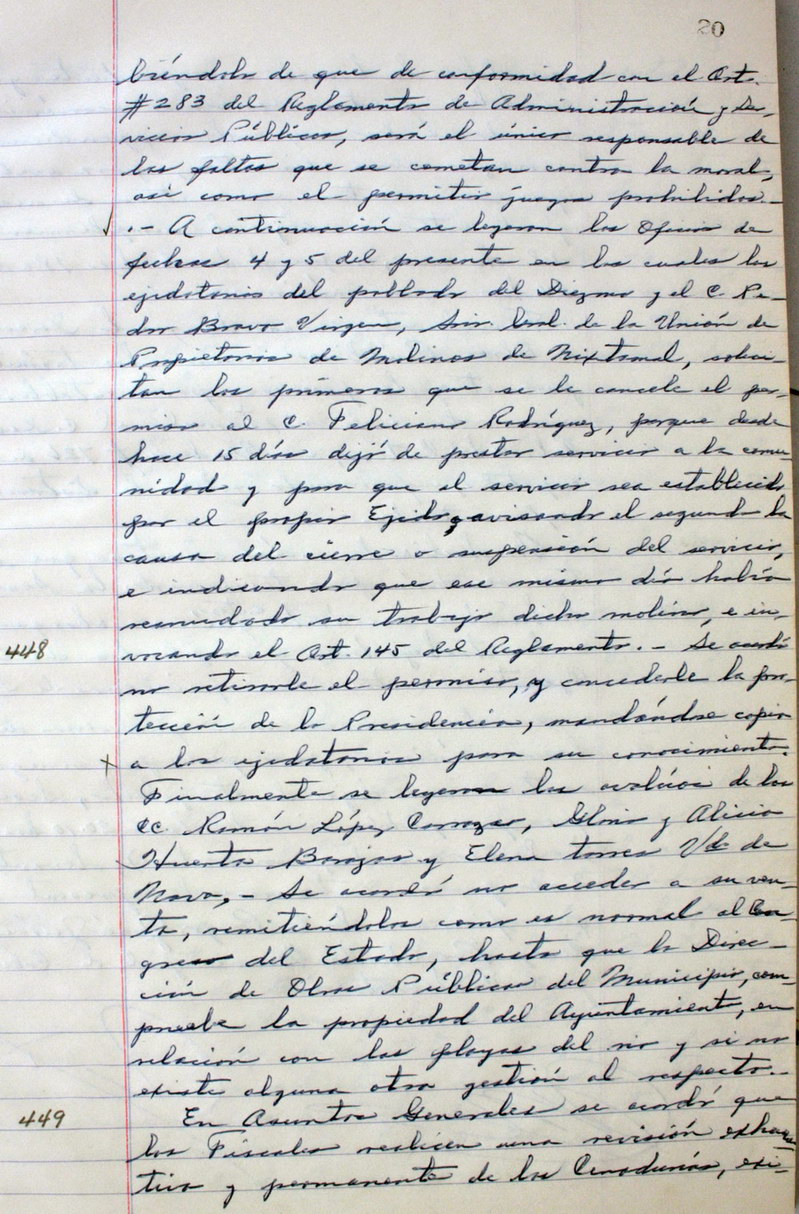 20
biéndole de que de conformidad con el Art.
#283 del Reglamento de Administración y Ser-
vicios Públicos, será el único responsable de
las faltas que se cometan contra la moral,
así como el permitir juegos prohibidos.-
.- A continuación se leyeron los Oficios de
fechas 4 y 5 del presente en los cuales los
ejidatarios del poblado del Diezmo y el C. Pe-
dro Bravo Virgen, Srio. Gral. de la Unión de
Propietarios de Molinos de Nixtamal, solici-
tan los primeros que se le cancele el per-
miso al C. Feliciano Rodríguez, porque desde
hace 15 días dejó de prestar servicio a la comu
nidad y para que el servicio sea establecido
por el propio Ejido, avisando el segundo la
causa del cierre o suspensión del servicio,
e indicando que ese mismo día había
reanudado su trabajo dicho molino, e in-
448 vocando el Art. 145 del Reglamento.- Se acordó
no retirarle el permiso, y concederle la pro-
tección de la Presidencia, mandándose copia
x a los ejidatarios para su conocimiento.
Finalmente se leyeron los avalúos de los
CC. Ramón López Carrazco, Gloria y Alicia
Huerta Barajas y Elena torres Vda de
Nava,- Se acordó no acceder a su ven-
ta, remitiéndolos como es normal al Con-
greso del Estado, hasta que la Direc-
ción de Obras Públicas del Municipio, com-
pruebe la propiedad del Ayuntamiento, en
relación con las playas del rio y si no
existe alguna otra gestión al respecto.-
449 En Asuntos Generales se acordó que
los Fiscales realicen una revisión exhaus
tiva y permanente de las Cenadurías, exi-